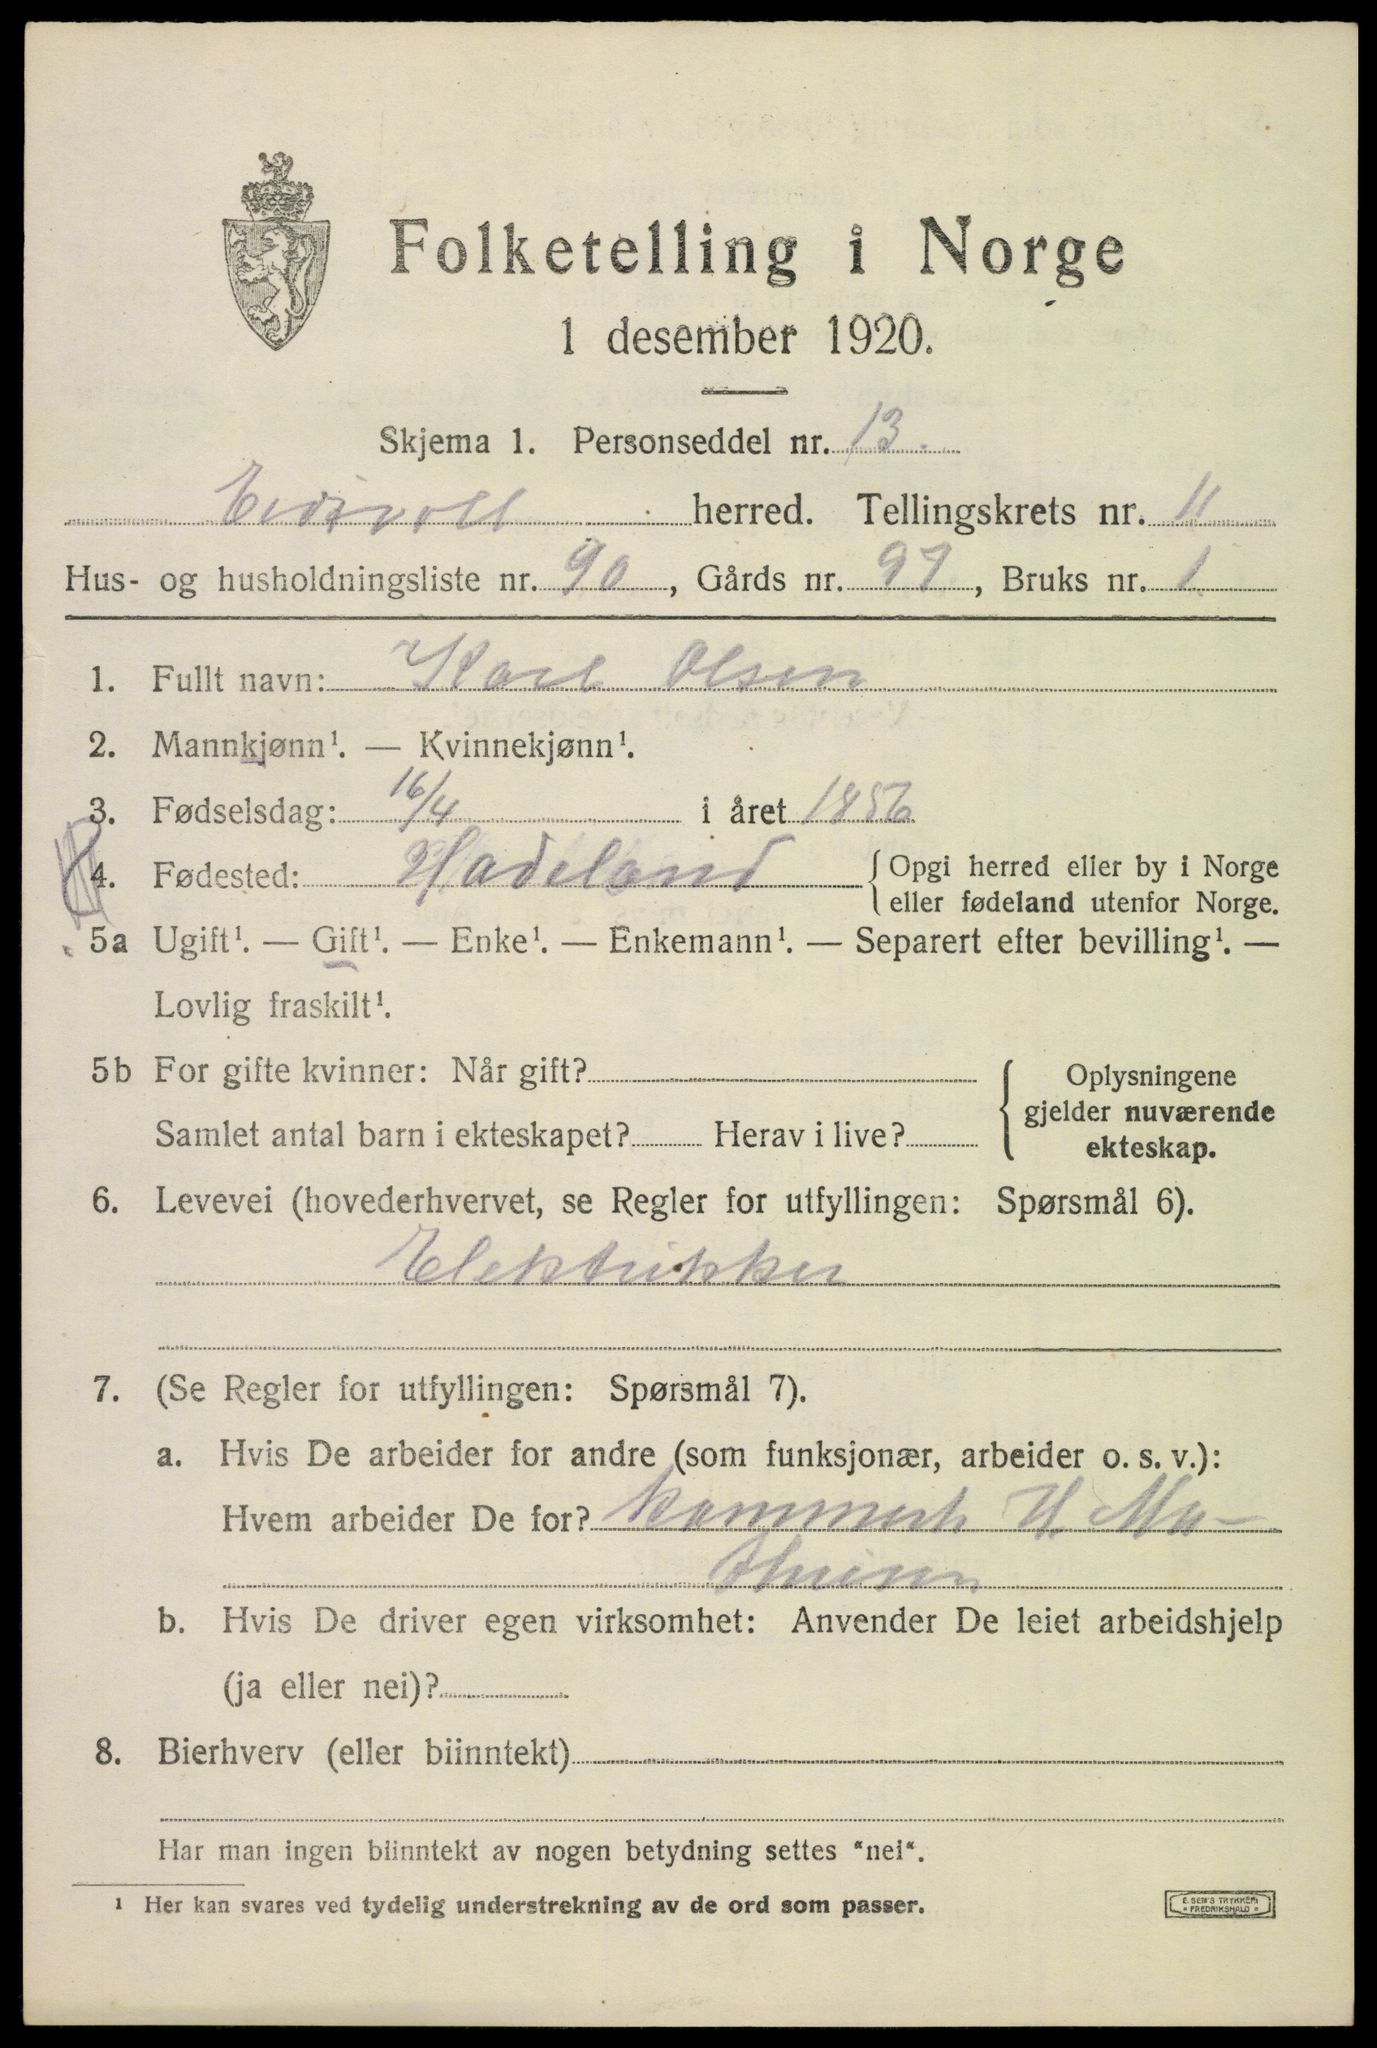 Folketelling i Norge
1 desember 1920.
Skjema 1. Personseddel nr. 13.
Eidsvoll herred. Tellingskrets nr. 11
Hus- og husholdningsliste nr. 90, Gårds nr. 97, Bruks nr. 1
1. Fullt navn: Karl Olsen
2. Mannkjønn¹. — Kvinnekjønn¹.
3. Fødselsdag: 16/4 i året 1856
4. Fødested: Hadeland { Opgi herred eller by i Norge
eller fødeland utenfor Norge.
5a Ugift¹. — Gift¹. — Enke¹. — Enkemann¹. — Separert efter bevilling¹. —
Lovlig fraskilt¹.
5b For gifte kvinner: Når gift? { Oplysningene
gjelder nuværende
Samlet antal barn i ekteskapet? Herav i live?
ekteskap.
6. Levevei (hovederhvervet, se Regler for utfyllingen: Spørsmål 6).
Elektrikker
7. (Se Regler for utfyllingen: Spørsmål 7).
a. Hvis De arbeider for andre (som funksjonær, arbeider o. s. v.):
Hvem arbeider De for? kammerh H. Ma-
thiesen
b. Hvis De driver egen virksomhet: Anvender De leiet arbeidshjelp
(ja eller nei)?
8. Bierhverv (eller biinntekt)
Har man ingen biinntekt av nogen betydning settes "nei".
¹ Her kan svares ved tydelig understrekning av de ord som passer.
E. SEM'S TRYKKERI
FREDRIKSHALD